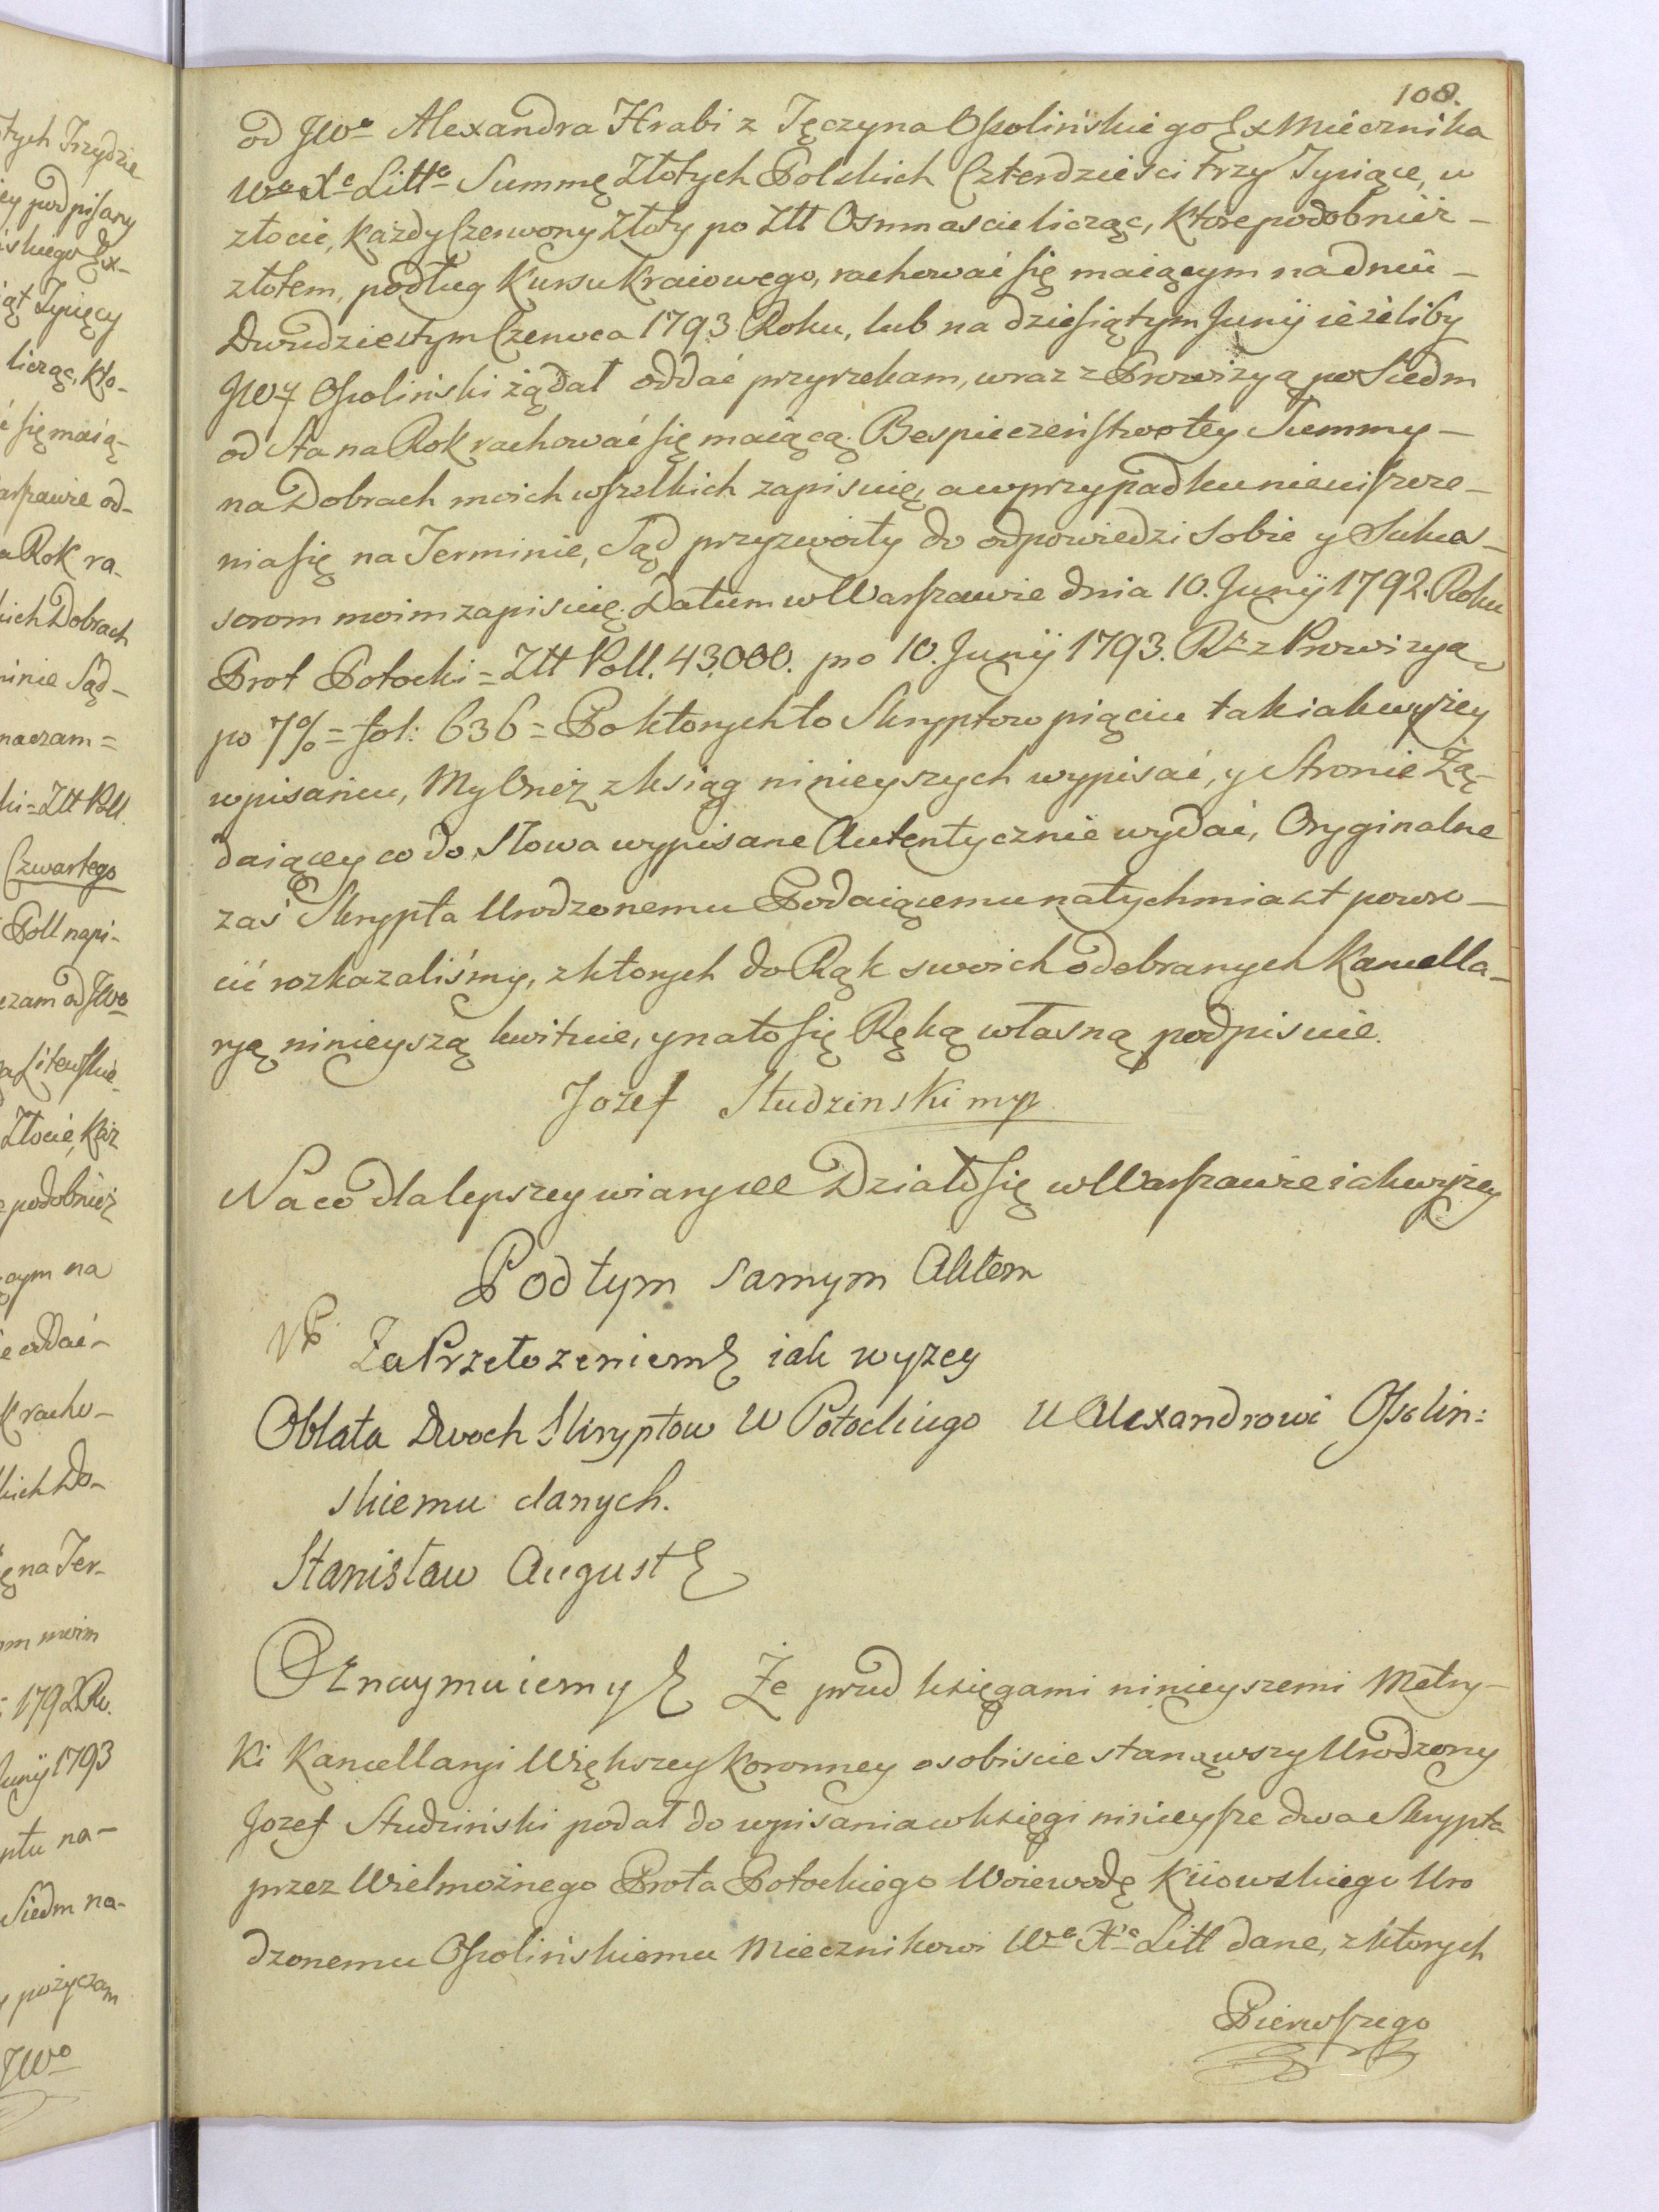 108.
od JWo Alexandra Hrabi z Tęczyna Ossolińskiego Ex Miecznika
Wo Xo Litto Summę Złotych Polskich Czterdzieści trzy Tysiące, w
złocie, każdy Czerwony Złoty po Złł Osmnascie licząc, które podobnież -
złotem, podług Kursu Kraiowego, rachować się maiącym na dniu -
Dwudziestym Czerwca 1793 Roku, lub na dziesiątym Junij ieżeliby
JWy Ossoliński żądał oddać przyrzekam, wraz z Prowizyą po Siedm
od Sta na Rok rachować się maiącą. Bespieczeństwo tey Summy -
na Dobrach moich wszelkich zapisuię, a w przypadku nieuiszcze -
nia się na Terminie, Sąd przyzwoity do odpowiedzi Sobie y Sukces -
sorom moim zapisuię. Datum w Warszawie dnia 10. Junij 1792. Roku
Prot Potocki = Złł Poll. 43,000. pro 10. Junij 1793. Ru z Prowizyą
po 7% = fol: 636 = Po których to Skryptow piąciu tak iak wyżey
wpisaniu, My Oneż z ksiąg ninieyszych wypisać, y Stronie Żą-
daiącey co do Słowa wypisane Autentycznie wydać, Oryginalne
zaś Skrypta Urodzonemu Podaiącemu natychmiast powró -
cić rozkazaliśmy, z których do Rąk swoich odebranych Kancella -
ryą ninieyszą kwituie, y na to się Ręką własną podpisuie.
Jozef Studzinski mp
Na co dla lepszey wiary etc Działo się w Warszawie iak wyżey
Pod tym samym Aktem
Za Przełożeniem etc iak wyżey
Oblata Dwoch Skryptow W Potockiego U Alexandrowi Ossolin:
skiemu danych.
Stanisław August etc
Oznaymuiemy etc Że przed księgami ninieyszemi Metry -
ki Kancellaryi Większey Koronney osobiscie stanąwszy Urodzony
Jozef Studziński podał do wpisania w księgi ninieysze dwa Skrypta
przez Wielmożnego Prota Potockiego Woiewodę Kiiowskiego Uro
dzonemu Ossolińskiemu Miecznikowi Wo Xo Litt dane, z których
Pierwszego